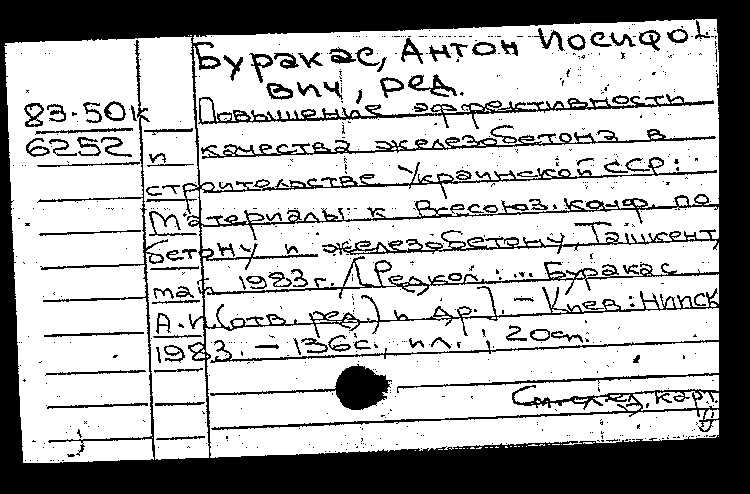 Буракас, Антон Иосифо
вич, ред.
83-50к Повышение эффективности
6252 и качества железобетона в
строительстве Украинской ССР:
Материалы к Всесоюз. конф. по
бетону и железобетону, Ташкент,
май 1983 г. / [Редкол.: ... Буракас
А.И. (отв. ред.) и др.]. - Киев: НИИСК
1983. - 136 с., ил.; 20 см.
См. след. карт